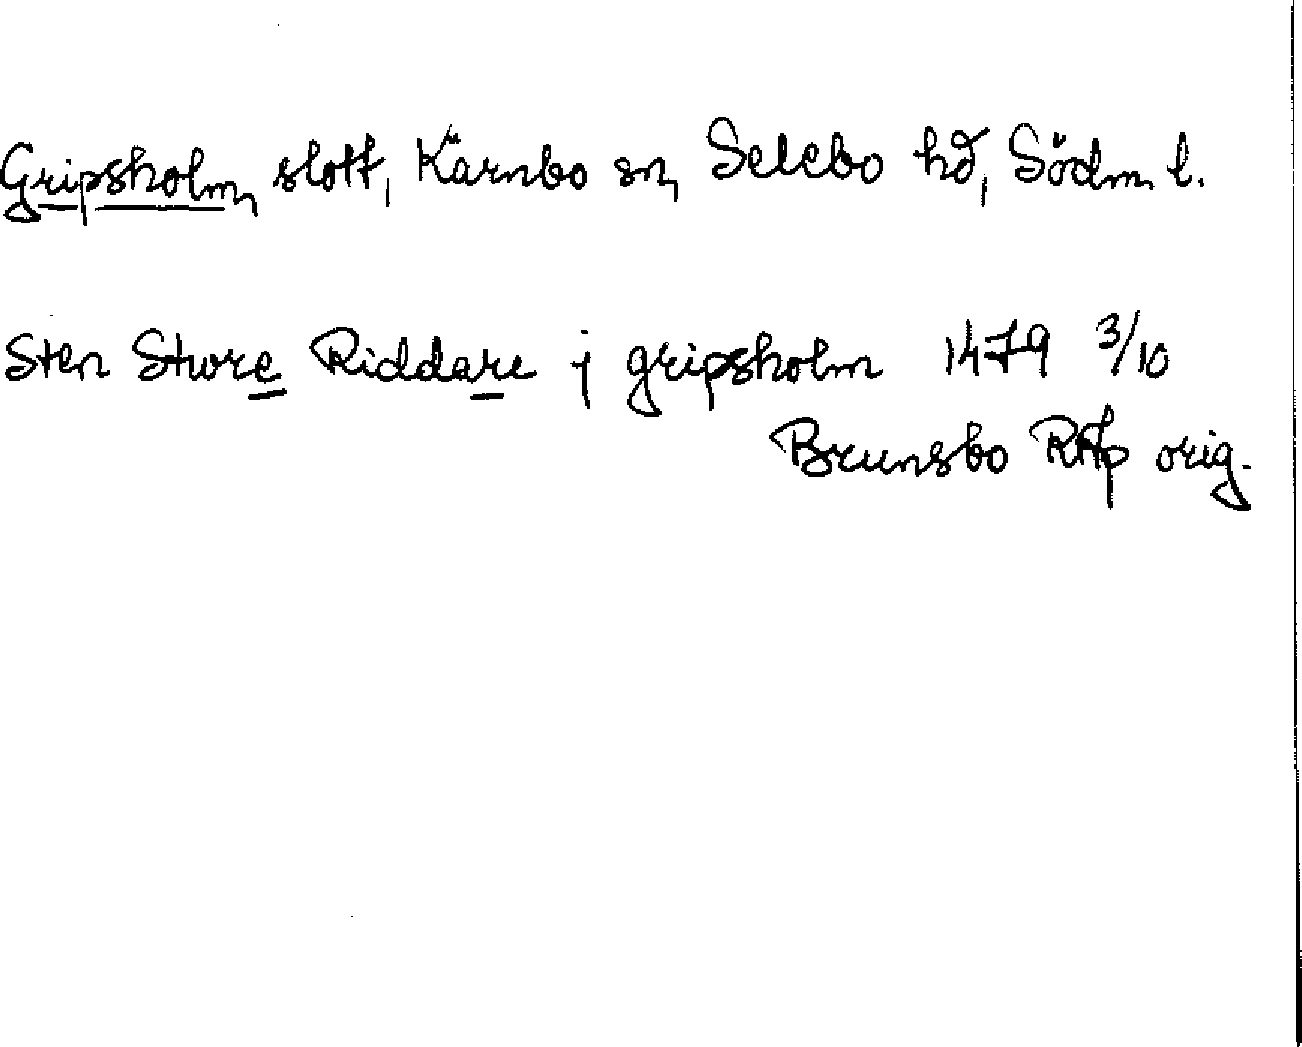 Gripsholm, slott, Kärnbo sn, Selebo hd, Södm. l.
Sten Sture Riddare j gripsholm 1479 3/10
Brunsbo RAp orig.